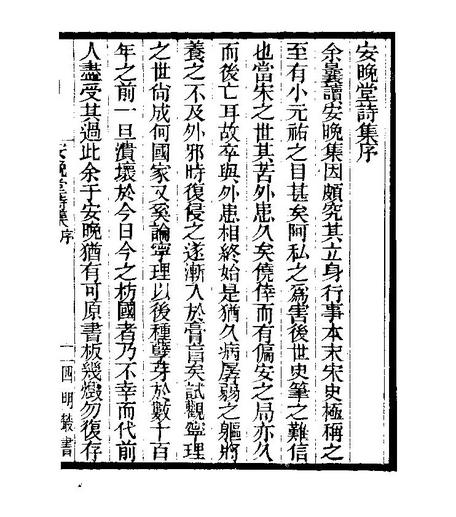 安晚堂詩集序
余曩讀安晚集因頗究其立身行事本末宋史極稱之
至有小元祐之目甚矣阿私之爲害後世史筆之難信
也當宋之世其苦外患久矣僥倖而有偏安之局亦久
而後亡耳故卒與外患相終始是猶久病孱弱之軀將
養之不及外邪時復侵之遂漸入於膏肓矣試觀寧理
之世尙成何國家又奚論寧理以後種孽芽於數十百
年之前一旦潰壞於今日今之枋國者乃不幸而代前
人盡受其過此余于安晚猶有可原書板幾燬勿復存
安晚堂詩集序
一四明叢書